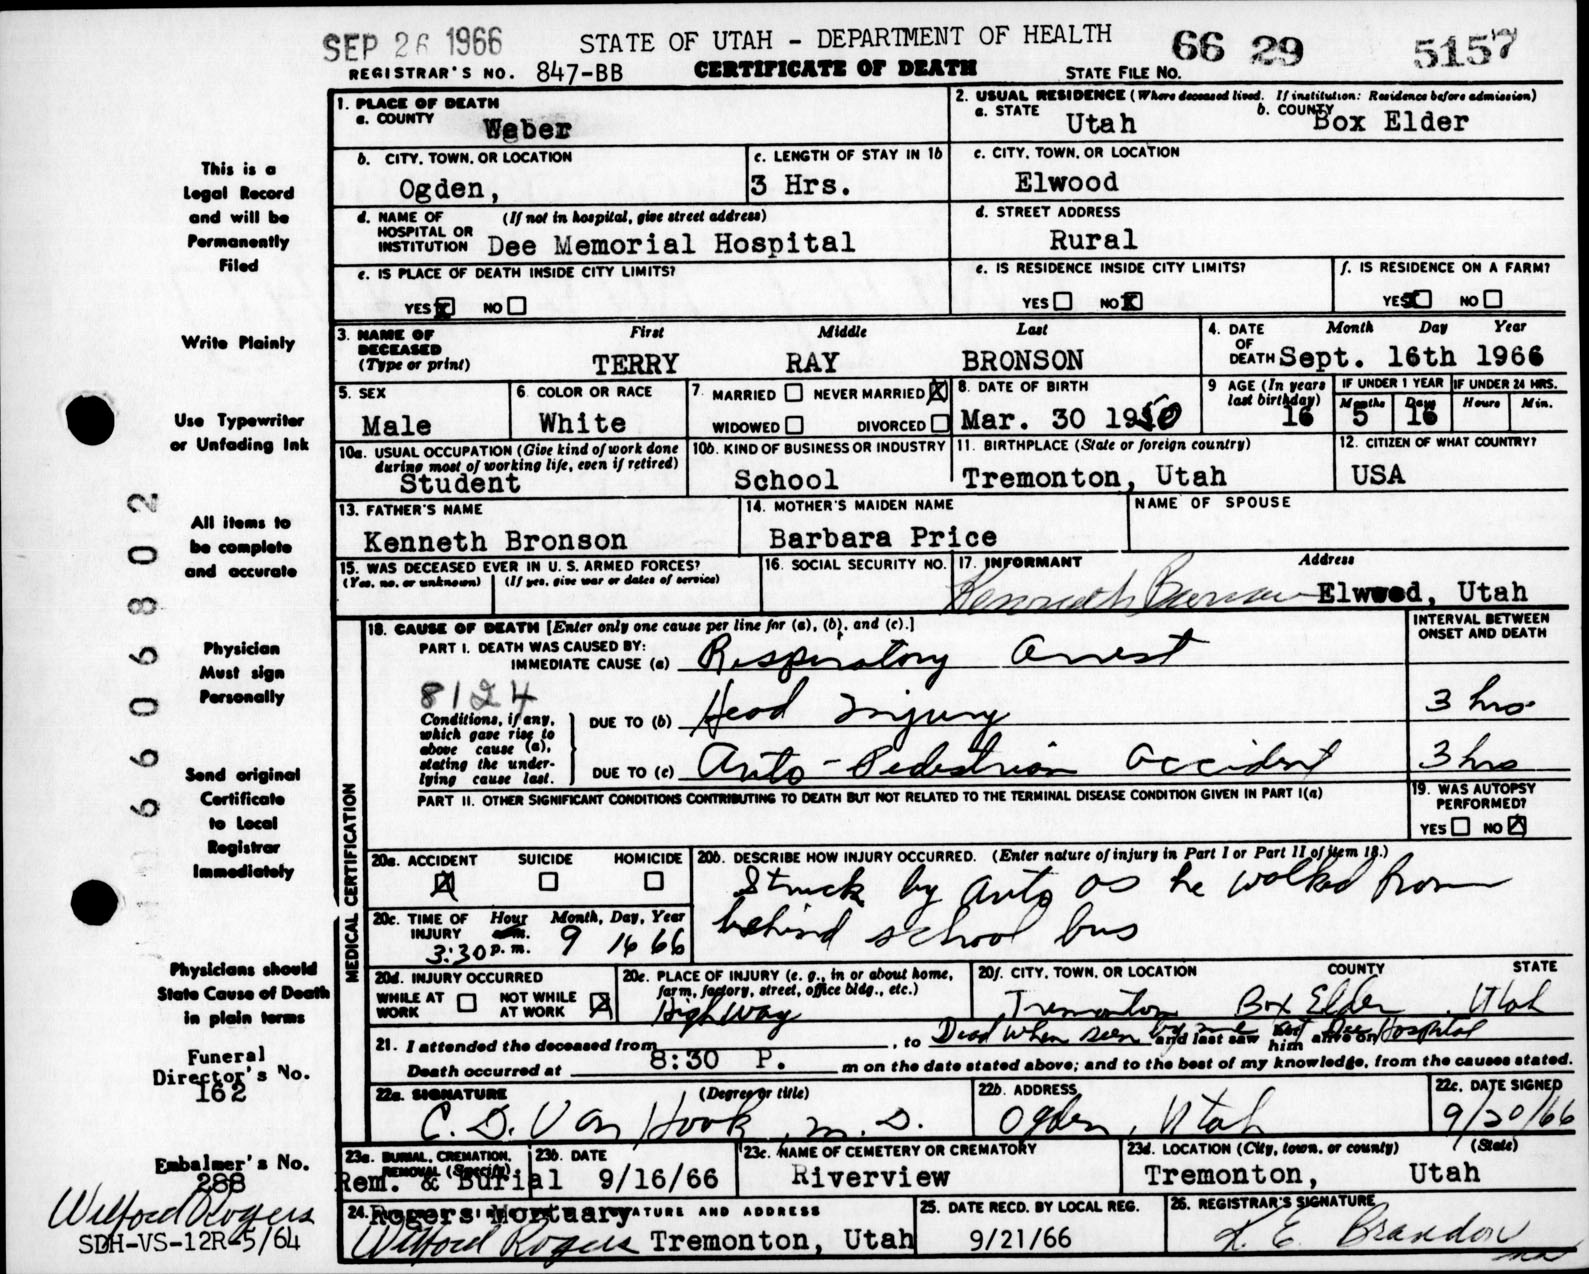 SEP 26 1966 STATE OF UTAH - DEPARTMENT OF HEALTH 66 29 5157
REGISTRAR'S NO. 847-BB CERTIFICATE OF DEATH STATE FILE NO.
1. PLACE OF DEATH
a. COUNTY Weber
2. USUAL RESIDENCE (Where deceased lived. If institution: Residence before admission)
a. STATE Utah b. COUNTY Box Elder
b. CITY, TOWN, OR LOCATION Ogden,
c. LENGTH OF STAY IN 1b 3 Hrs.
c. CITY, TOWN, OR LOCATION Elwood
d. NAME OF HOSPITAL OR INSTITUTION (If not in hospital, give street address) Dee Memorial Hospital
d. STREET ADDRESS Rural
e. IS PLACE OF DEATH INSIDE CITY LIMITS?
YES X NO
e. IS RESIDENCE INSIDE CITY LIMITS?
YES NO X
f. IS RESIDENCE ON A FARM?
YES X NO
3. NAME OF DECEASED (Type or print) First Middle Last
TERRY RAY BRONSON
4. DATE OF DEATH Month Day Year
Sept. 16th 1966
5. SEX Male
6. COLOR OR RACE White
7. MARRIED NEVER MARRIED X
WIDOWED DIVORCED
8. DATE OF BIRTH Mar. 30 1950
9 AGE (In years last birthday) 16
IF UNDER 1 YEAR Months 5 Days 16
IF UNDER 24 HRS. Hours Min.
10a. USUAL OCCUPATION (Give kind of work done during most of working life, even if retired)
Student
10b. KIND OF BUSINESS OR INDUSTRY School
11. BIRTHPLACE (State or foreign country) Tremonton, Utah
12. CITIZEN OF WHAT COUNTRY? USA
13. FATHER'S NAME Kenneth Bronson
14. MOTHER'S MAIDEN NAME Barbara Price
NAME OF SPOUSE
15. WAS DECEASED EVER IN U. S. ARMED FORCES?
(Yes, no, or unknown) (If yes, give war or dates of service)
16. SOCIAL SECURITY NO.
17. INFORMANT Address
Kenneth Bronson Elwood, Utah
18. CAUSE OF DEATH [Enter only one cause per line for (a), (b), and (c).]
INTERVAL BETWEEN ONSET AND DEATH
PART I. DEATH WAS CAUSED BY:
IMMEDIATE CAUSE (a) Respiratory arrest
8124
Conditions, if any, which gave rise to above cause (a), stating the underlying cause last.
DUE TO (b) Head Injury 3 hrs.
DUE TO (c) Auto-Pedestrian accident 3 hrs
PART II. OTHER SIGNIFICANT CONDITIONS CONTRIBUTING TO DEATH BUT NOT RELATED TO THE TERMINAL DISEASE CONDITION GIVEN IN PART I(a)
19. WAS AUTOPSY PERFORMED?
YES NO X
MEDICAL CERTIFICATION
20a. ACCIDENT SUICIDE HOMICIDE
X
20b. DESCRIBE HOW INJURY OCCURRED. (Enter nature of injury in Part I or Part II of item 18.)
Struck by auto as he walked from
behind school bus
20c. TIME OF INJURY Hour Month, Day, Year
a.m.
3:30 p.m. 9 16 66
20d. INJURY OCCURRED
WHILE AT WORK NOT WHILE AT WORK X
20e. PLACE OF INJURY (e. g., in or about home, farm, factory, street, office bldg., etc.)
Highway
20f. CITY, TOWN, OR LOCATION COUNTY STATE
Tremonton Box Elder Utah
21. I attended the deceased from , to Dead when seen by me at Dee Hospital and last saw him alive on
Death occurred at 8:30 P. m on the date stated above; and to the best of my knowledge, from the causes stated.
22a. SIGNATURE (Degree or title)
C. D. Van Hook, m. D.
22b. ADDRESS Ogden, Utah
22c. DATE SIGNED 9/20/66
23a. BURIAL, CREMATION, REMOVAL (Specify) Rem. & Burial
23b. DATE 9/16/66
23c. NAME OF CEMETERY OR CREMATORY Riverview
23d. LOCATION (City, town, or county) (State)
Tremonton, Utah
24. Rogers Mortuary SIGNATURE AND ADDRESS
Wilford Rogers Tremonton, Utah
25. DATE RECD. BY LOCAL REG. 9/21/66
26. REGISTRAR'S SIGNATURE
K. E. Brandon
This is a
Legal Record
and will be
Permanently
Filed
Write Plainly
Use Typewriter
or Unfading Ink
All items to
be complete
and accurate
Physician
Must sign
Personally
Send original
Certificate
to Local
Registrar
Immediately
Physicians should
State Cause of Death
in plain terms
Funeral
Director's No.
162
Embalmer's No.
288
Wilford Rogers
SDH-VS-12R-5/64
66 06802